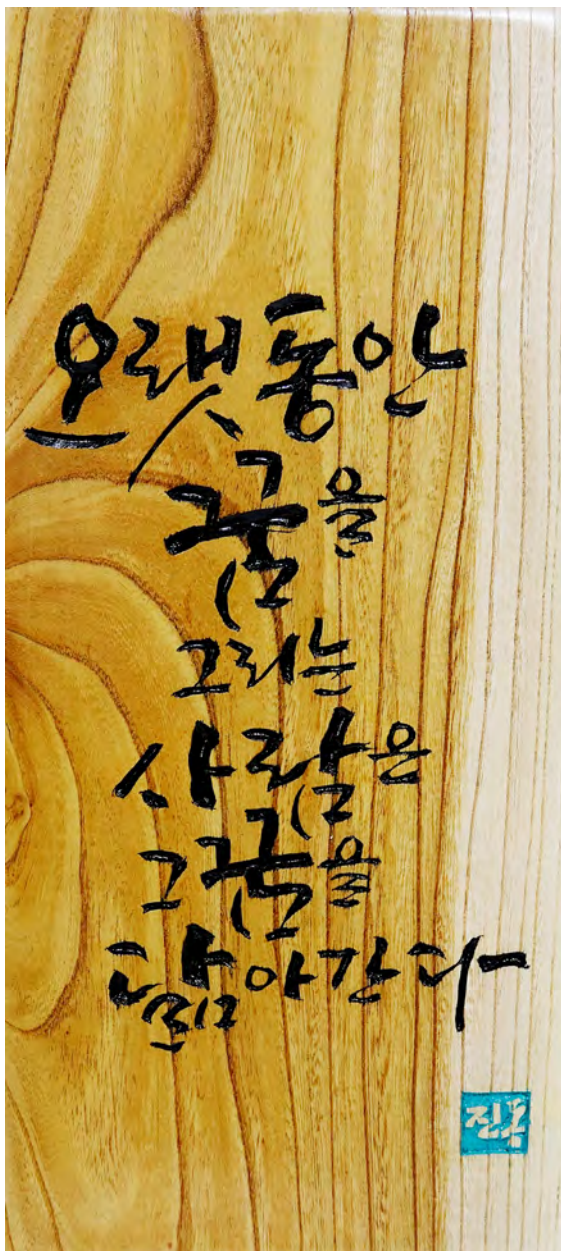 오랫동안
꿈을
그리는
사람은
그 꿈을
닮아간다
진동